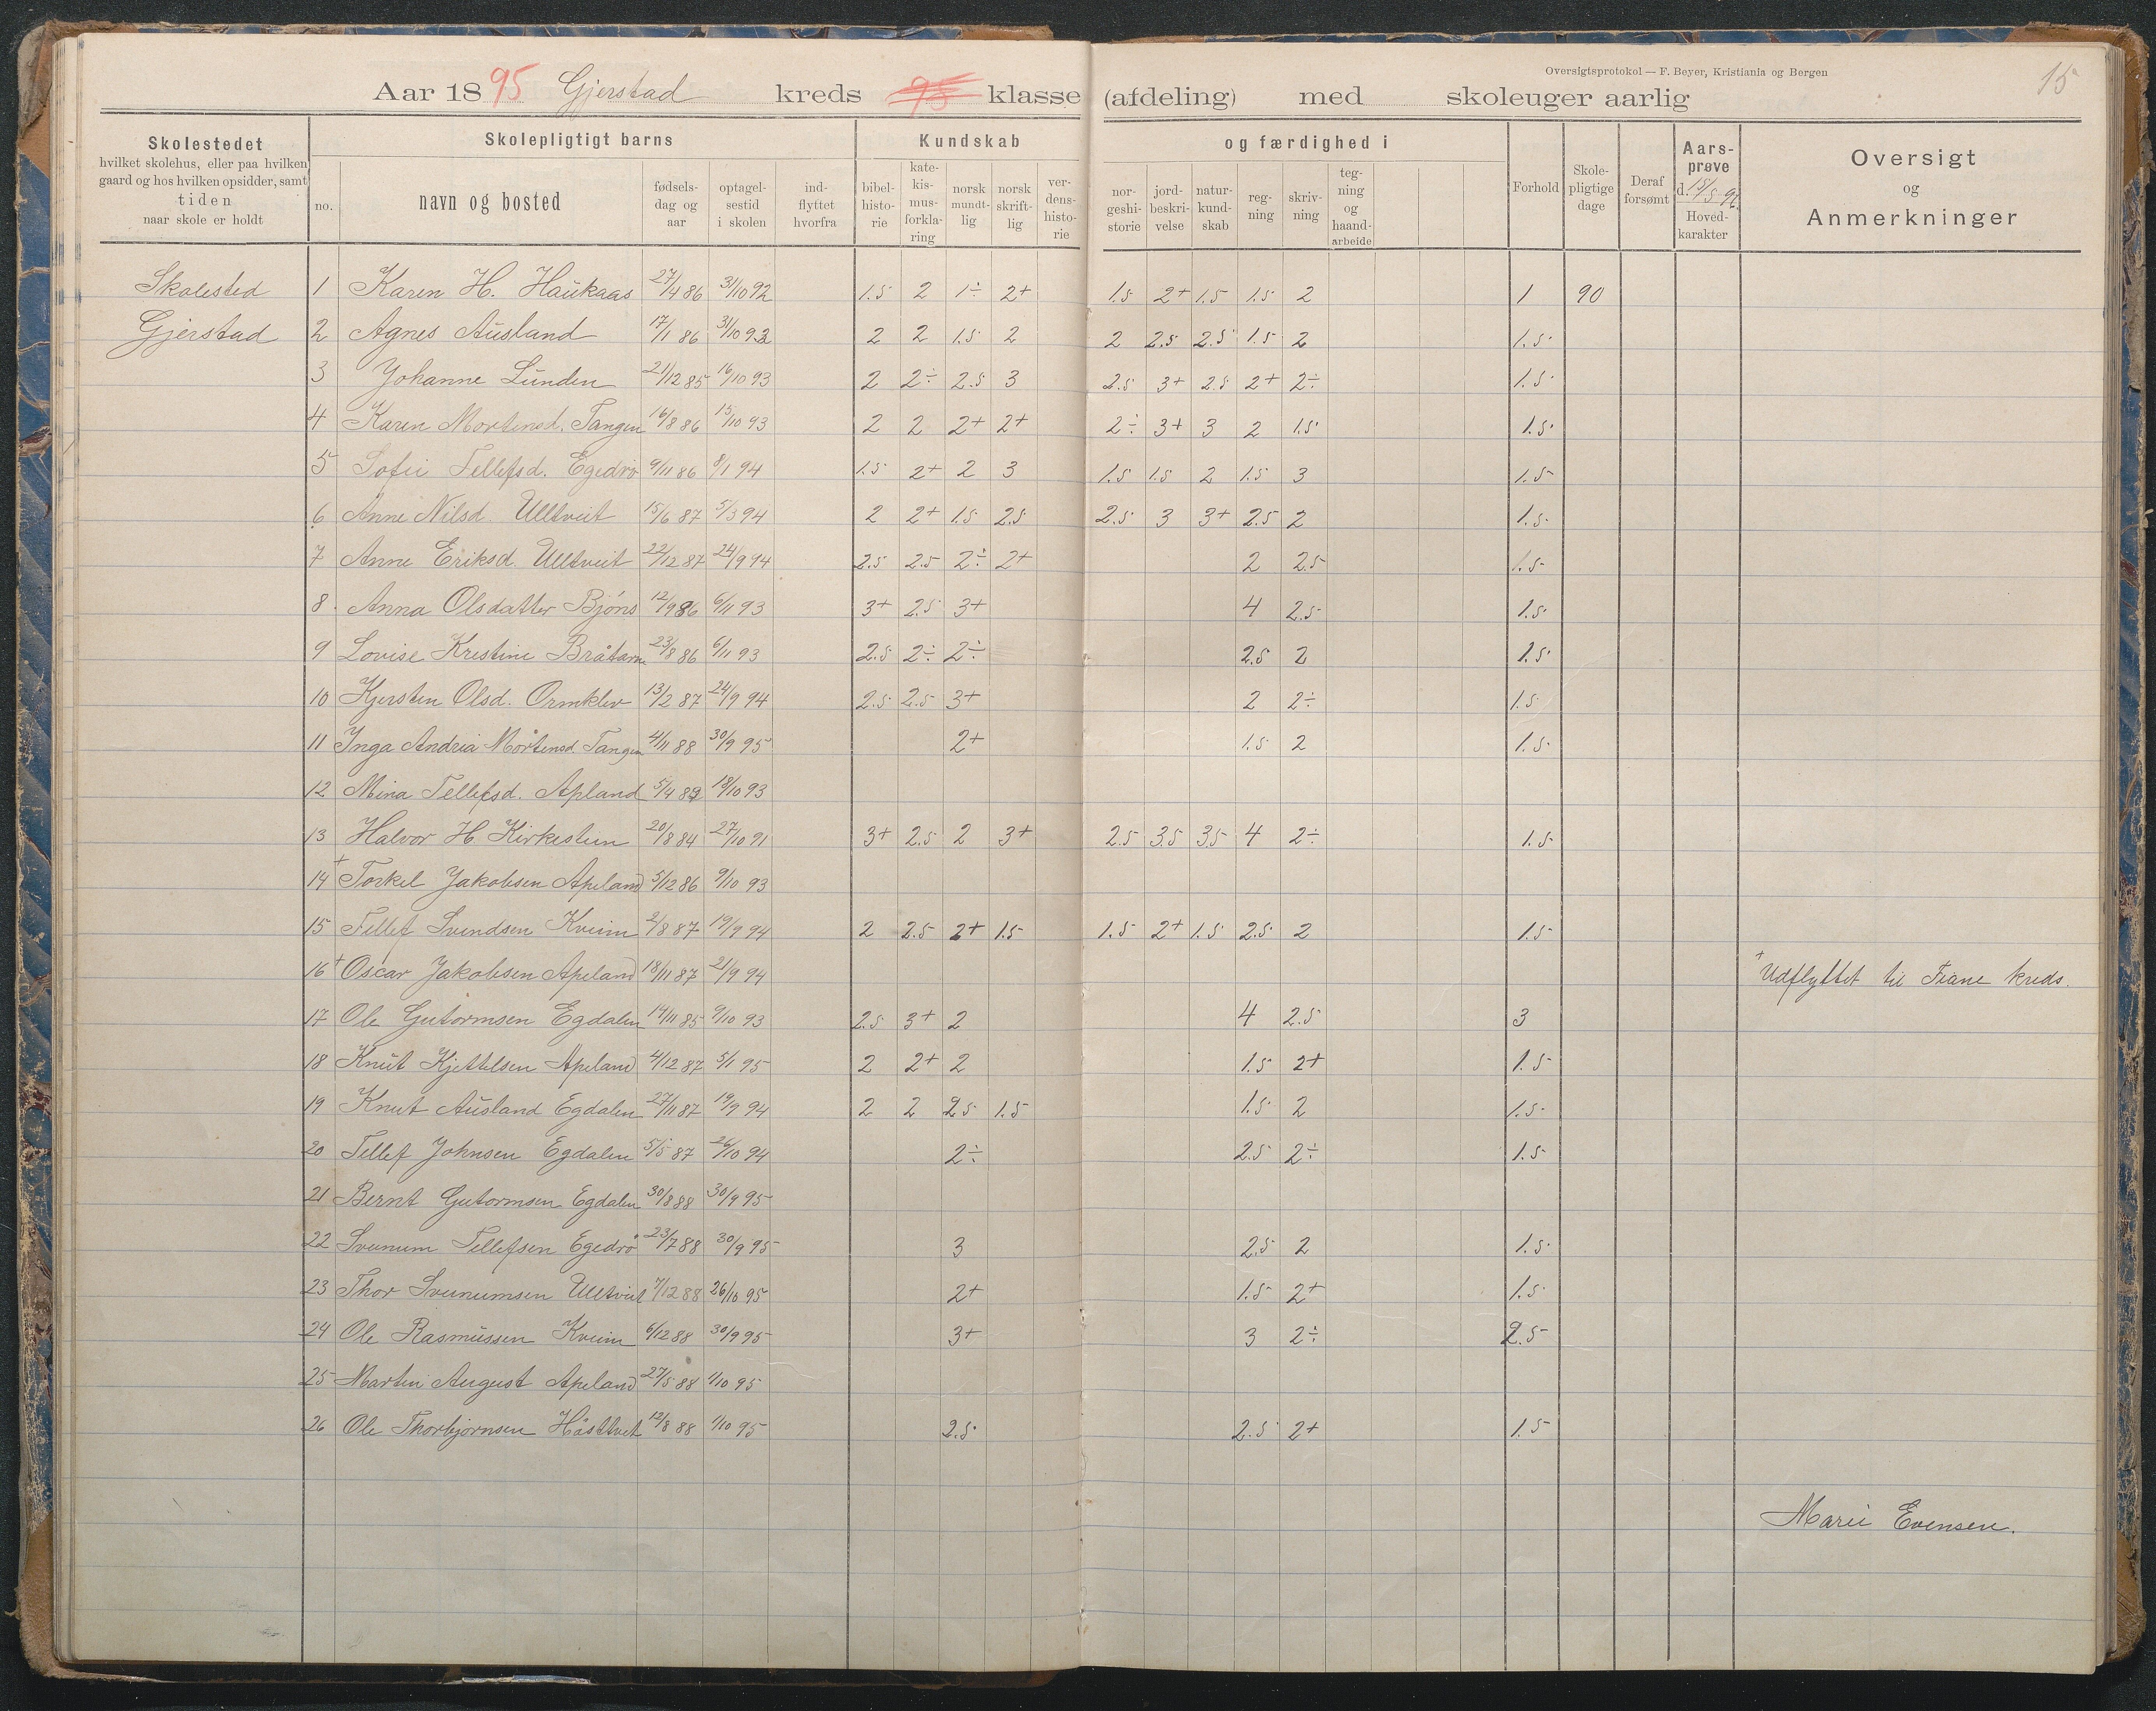 Oversigtsprotokol — F. Beyer, Kristiania og Bergen
15
Aar 1895 Gjerstad kreds 95 klasse (afdeling) med skoleuger aarlig
Skolestedet
hvilket skolehus, eller paa hvilken
gaard og hos hvilken opsidder, samt
tiden
naar skole er holdt
Skolepligtigt barns
no.
navn og bosted
fødsels-
dag og
aar
optagel-
sestid
i skolen
ind-
flyttet
hvorfra
Kundskab
bibel-
histo-
rie
kate-
kis-
mus-
forkla-
ring
norsk
mundt-
lig
norsk
skrift-
lig
ver-
dens-
histo-
rie
og færdighed i
nor-
geshi-
storie
jord-
beskri-
velse
natur-
kund-
skab
reg-
ning
skriv-
ning
teg-
ning
og
haand-
arbeide
Forhold
Skole-
pligtige
dage
Deraf
forsømt
Aars-
prøve
d. 15/5 96
Hoved-
karakter
Oversigt
og
Anmerkninger
Skolested 1 Karen H. Haukaas 27/4 86 31/10 92 1.5 2 1÷ 2+ 1.5 2+ 1.5 1.5 2 1 90
Gjerstad 2 Agnes Ausland 17/1 86 31/10 93 2 2 1.5 2 2 2.5 2.5 1.5 2 1.5
3 Johanne Lunden 21/12 85 16/10 93 2 2÷ 2.5 3 2.5 3+ 2.5 2+ 2÷ 1.5
4 Karen Mortensd. Tangen 16/8 86 15/10 93 2 2 2+ 2+ 2÷ 3+ 3 2 1.5 1.5
5 Sofie Tellefsd. Egedrø 9/11 86 8/1 94 1.5 2+ 2 3 1.5 1.5 2 1.5 3 1.5
6 Anne Nilsd. Ulltveit 15/6 87 5/3 94 2 2+ 1.5 2.5 2.5 3 3+ 2.5 2 1.5
7 Anne Eriksd. Ulltveit 22/12 87 24/9 94 2.5 2.5 2÷ 2+ 2 2.5 1.5
8 Anna Olsdatter Bjøns 12/9 86 6/11 93 3+ 2.5 3+ 4 2.5 1.5
9 Lovise Kristine Bråtane 23/8 86 6/11 93 2.5 2÷ 2÷ 2.5 2 1.5
10 Kjersten Olsd. Ormklev 13/2 87 24/9 94 2.5 2.5 3+ 2 2÷ 1.5
11 Inga Andria Mortensd. Tangen 4/11 88 30/9 95 2+ 1.5 2 1.5
12 Mina Tellefsd. Apland 5/4 18/10 93
13 Halvor H. Kirkestein 20/8 84 27/10 91 3+ 2.5 2 3+ 2.5 3.5 3.5 4 2÷ 1.5
14 + Torkel Jakobsen Apeland 5/12 86 9/10 93
15 Tellef Svendsen Kveim 2/8 87 19/9 94 2 2.5 2+ 1.5 1.5 2+ 1.5 2.5 2 1.5
16 + Oscar Jakobsen Apeland 18/11 87 21/9 94 + Udflyttet til Fiane kreds.
17 Ole Gutormsen Egdalen 14/11 85 9/10 93 2.5 3+ 2 4 2.5 3
18 Knut Kjettelsen Apeland 4/12 87 5/1 95 2 2+ 2 1.5 2+ 1.5
19 Knut Ausland Egdalen 27/11 87 19/9 94 2 2 2.5 1.5 1.5 2 1.5
20 Tellef Johnsen Egdalen 5/5 87 26/10 94 2÷ 2.5 2÷ 1.5
21 Bernt Gutormsen Egdalen 30/8 88 30/9 95
22 Svenum Tellefsen Egedrø 23/7 88 30/9 95 3 2.5 2 1.5
23 Thor Svenumsen Ulltveit 7/12 88 26/10 95 2+ 1.5 2+ 1.5
24 Ole Rasmussen Kveim 6/12 88 30/9 95 3+ 3 2÷ 2.5
25 Martin August Apeland 27/5 88 1/10 95
26 Ole Thorbjørnsen Håsltveit 12/8 88 1/10 95 2.5 2.5 2+ 1.5
Marie Evensen.